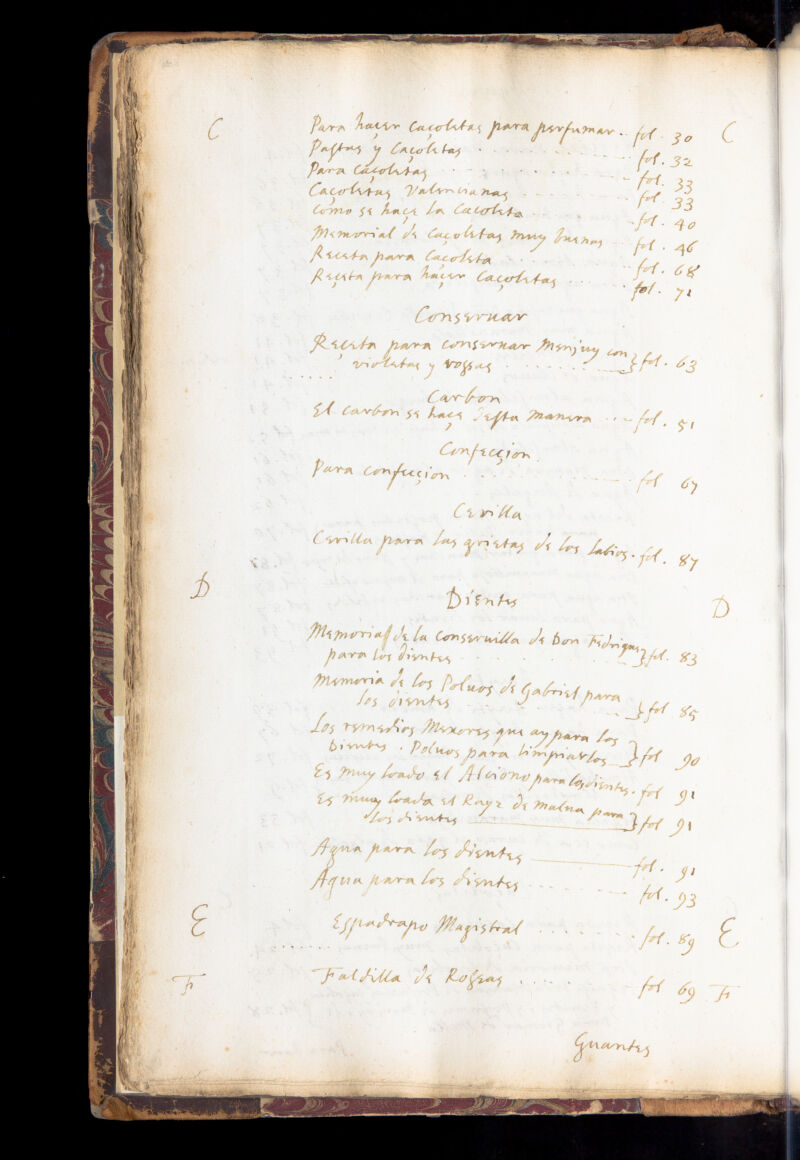 C Para haçer Caçoletas para perfumar .. fol. 30 C
Pastas y Caçoletas . . . . . . . . fol. 32
Para Caçoletas . . . . . . . . fol. 33
Caçoletas Valencianas . . . . . . . . fol. 33
Como se haçe la Caçoleta . . . . . fol. 40
Memorial de Caçoletas muy buenas . . fol. 46
Receta para Caçoleta . . . . . . fol. 68
Reçeta para haçer Caçoletas . . . . . . fol. 71
Conseruar
Reçeta para conseruar Menjuy con } fol. 63
violetas y rossas . . . . . . . .
Carbon
El carbon se haçe desta manera . . . fol. 51
Confecçion.
Para confecçion . . . . . . . . fol 67
Cerilla
Cerilla para las grietas de los labios. fol. 87
D D
Dientes
Memorial de la Conseruilla de Don Fedrique } fol. 83
para los dientes . . . . . .
Memoria de los Poluos de Gabriel para
los dientes . . . . . } fol 85
Los remedios Mexores que ay para los
Dientes . Poluos para limpiarlos } fol 90
Es muy loado el Alciono para los dientes. fol 91
Es muy loada el Rayz de malua para
los dientes } fol 91
Agua para los dientes fol. 91
Agua para los dientes . . . . . fol. 93
E Espadrapo Magistral . . . . . . fol. 89 E
F Faldilla de Rossas . . . . . fol 69 F
Guantes